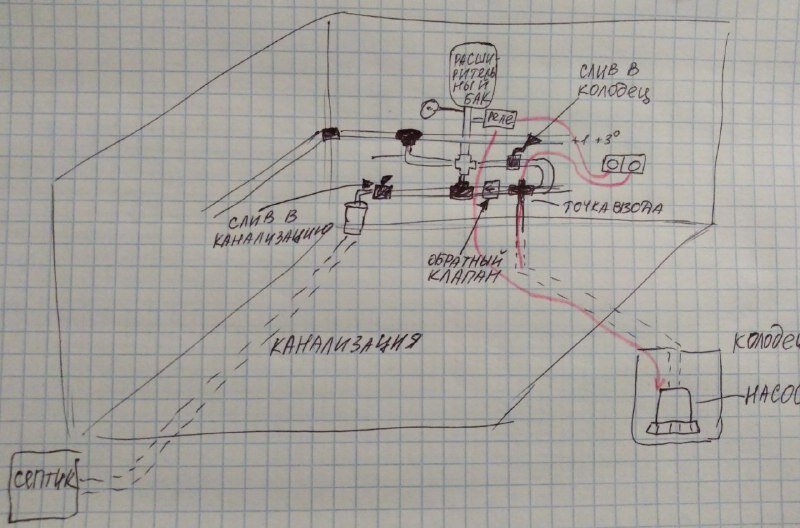 РАСШИ-
РИТЕЛЬ
НЫЙ
БАК
РЕЛЕ
СЛИВ В
КОЛОДЕЦ
+1 +3°
СЛИВ В
КАНАЛИЗАЦИЮ
ТОЧКА ВВОДА
ОБРАТНЫЙ
КЛАПАН
КАНАЛИЗАЦИЯ
КОЛОДЕЦ
НАСОС
СЕПТИК